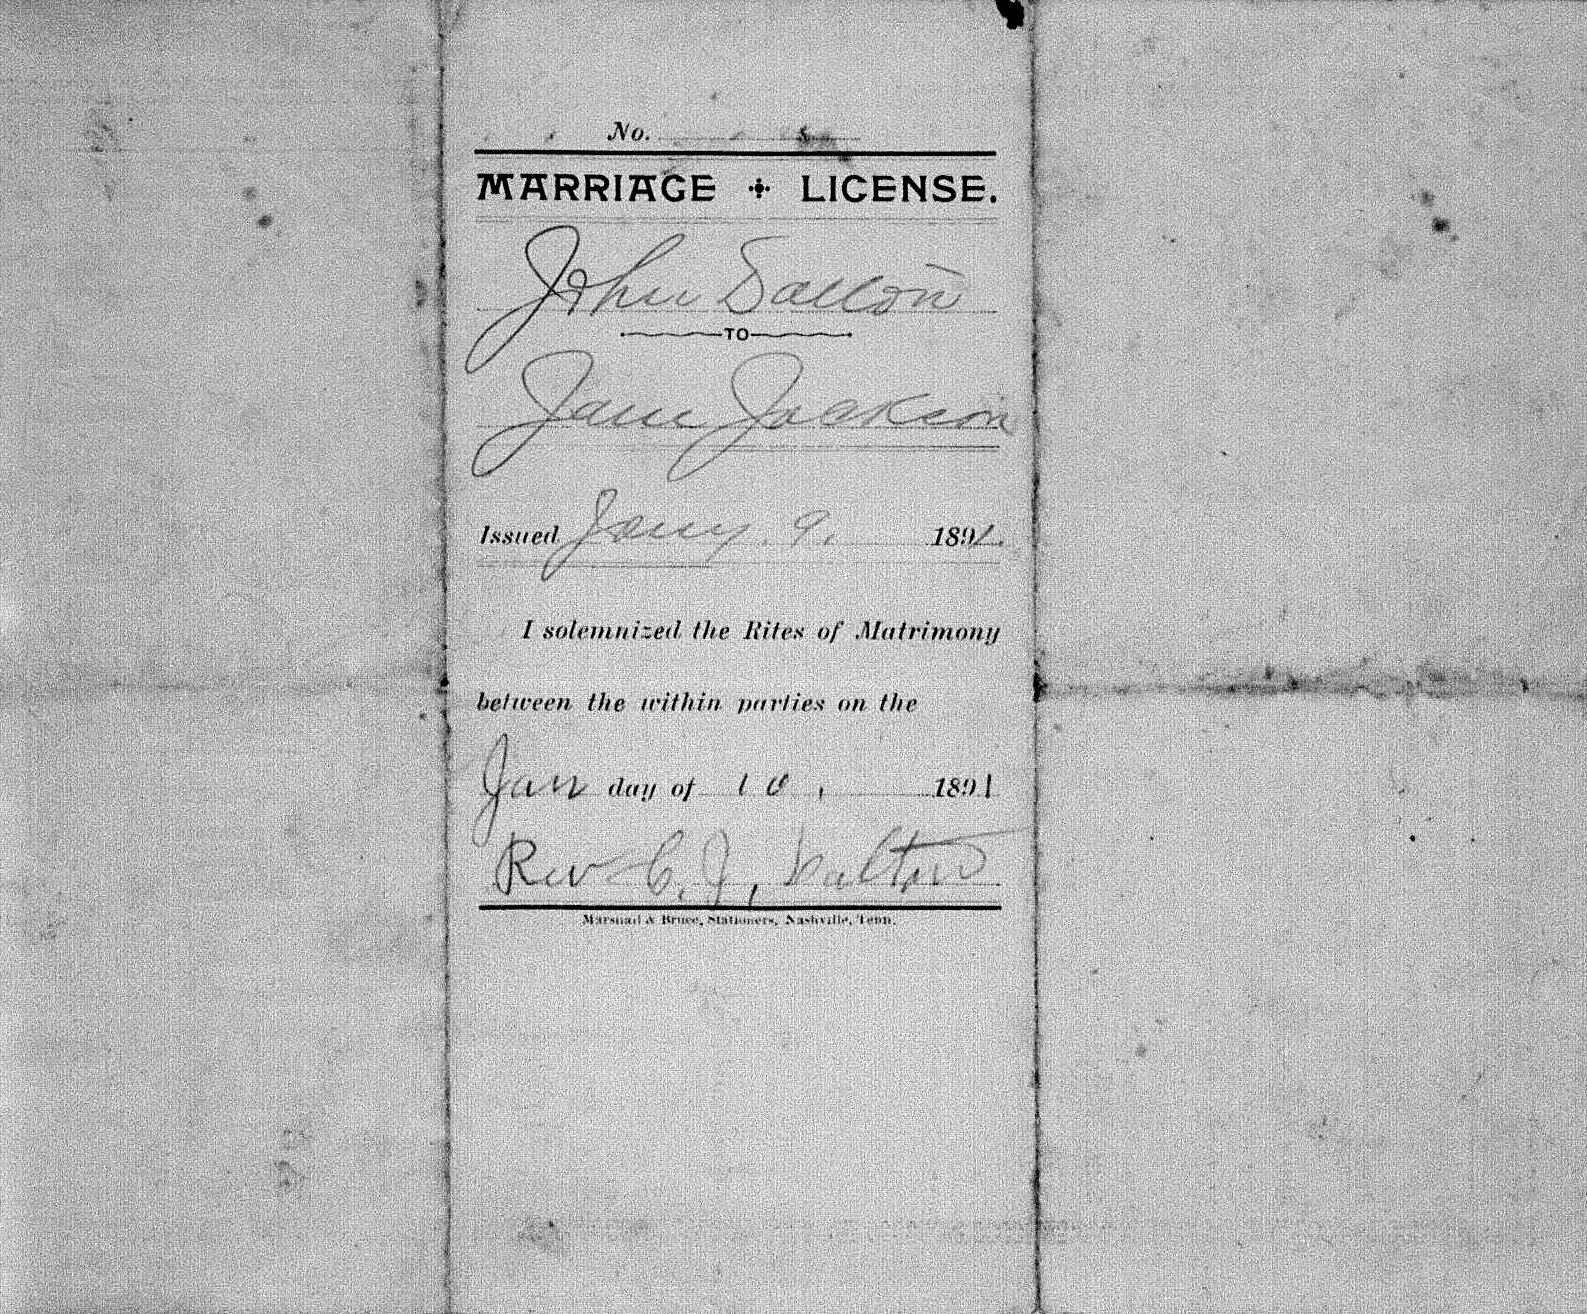 No.
MARRIAGE LICENSE.
John Dalton
TO
Jane Jackson
Issued Jany. 9. 1891.
I solemnized the Rites of Matrimony
between the within parties on the
Jan day of 10, 1891
Rev C. J, Dalton
Marshall & Bruce, Stationers, Nashville, Tenn.